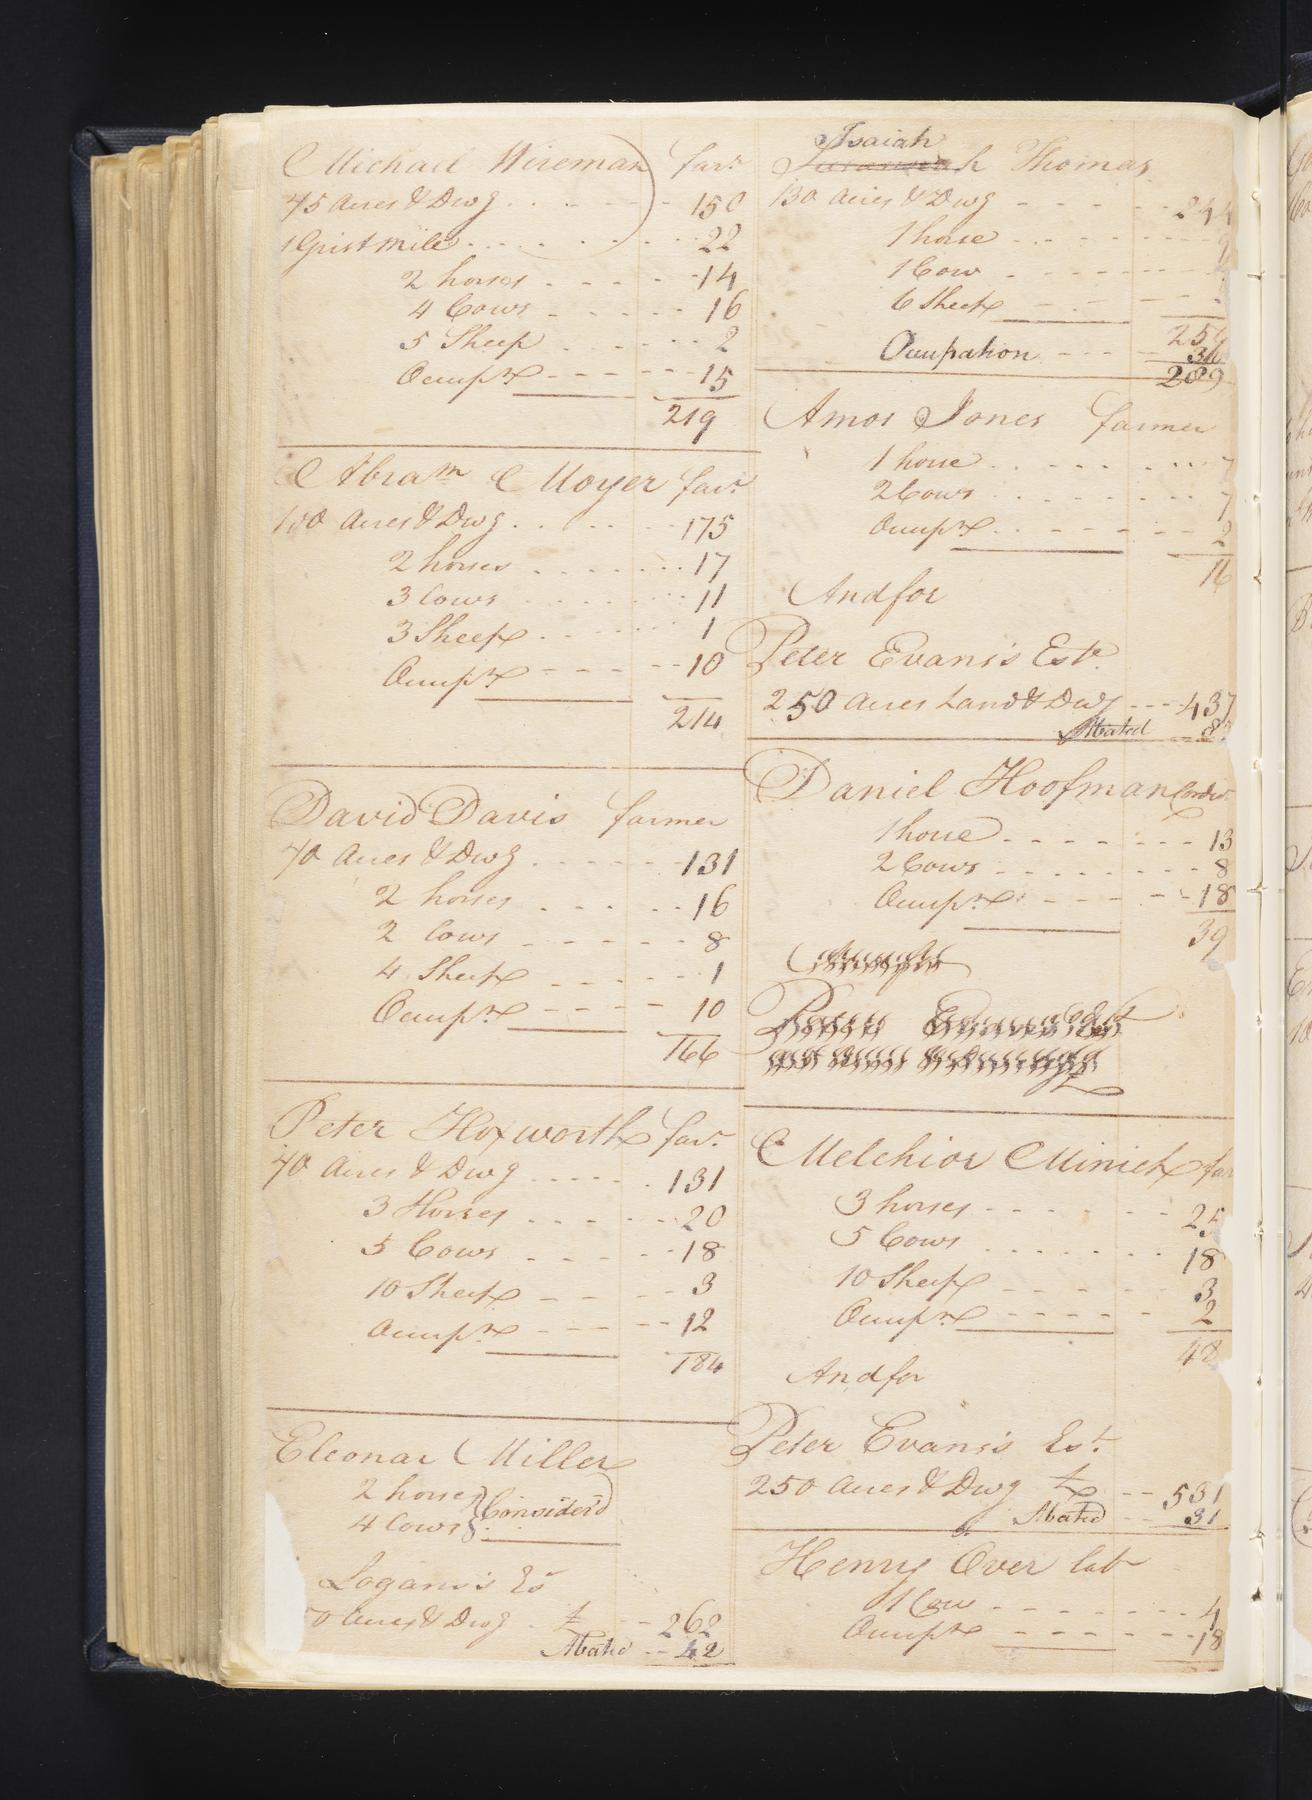 Michael Wireman far.r
75 Acres & Dwg 150
1 Grist mile 22
2 horses 14
4 Cows 16
5 Sheep 2
Occup.n 15
219
Abra.m Moyer far.r
100 Acres & Dwg 175
2 horses 17
3 Cows 11
3 Sheep 1
Occup.n 10
214
David Davis farmer
70 Acres & Dwg 131
2 horses 16
2 Cows 8
4 Sheep 1
Occup.n 10
166
Peter Hoxworth far.r
70 Acres & Dwg 131
3 Horses 20
5 Cows 18
10 Sheep 3
Occup.n 12
184
Eleonar Miller
2 horses
4 Cows
Consider'd
Logans's Es.t
0 Acres & Dwg 262
Abated 42
Isaiah
Thomas
130 Acres & Dwg
1 horse
1 Cow
6 Sheep
Occupation
289
Amos Jones farmer
1 horse 7
2 Cows 7
Occup.n 2
16
And for
Peter Evans's Est.e
250 Acres Land & Dwg 437
Abated
Daniel Hoofman Cordw.r
1 horse 13
2 Cows 8
Occup.n 18
39
Melchior Minich far
3 horses 25
5 Cows 18
10 Sheep 3
Occup.n 2
48
And for
Peter Evans's Es.t
250 Acres & Dwg 531
Abated 31
Henry Over lab.r
1 Cow 4
Occup.n 18